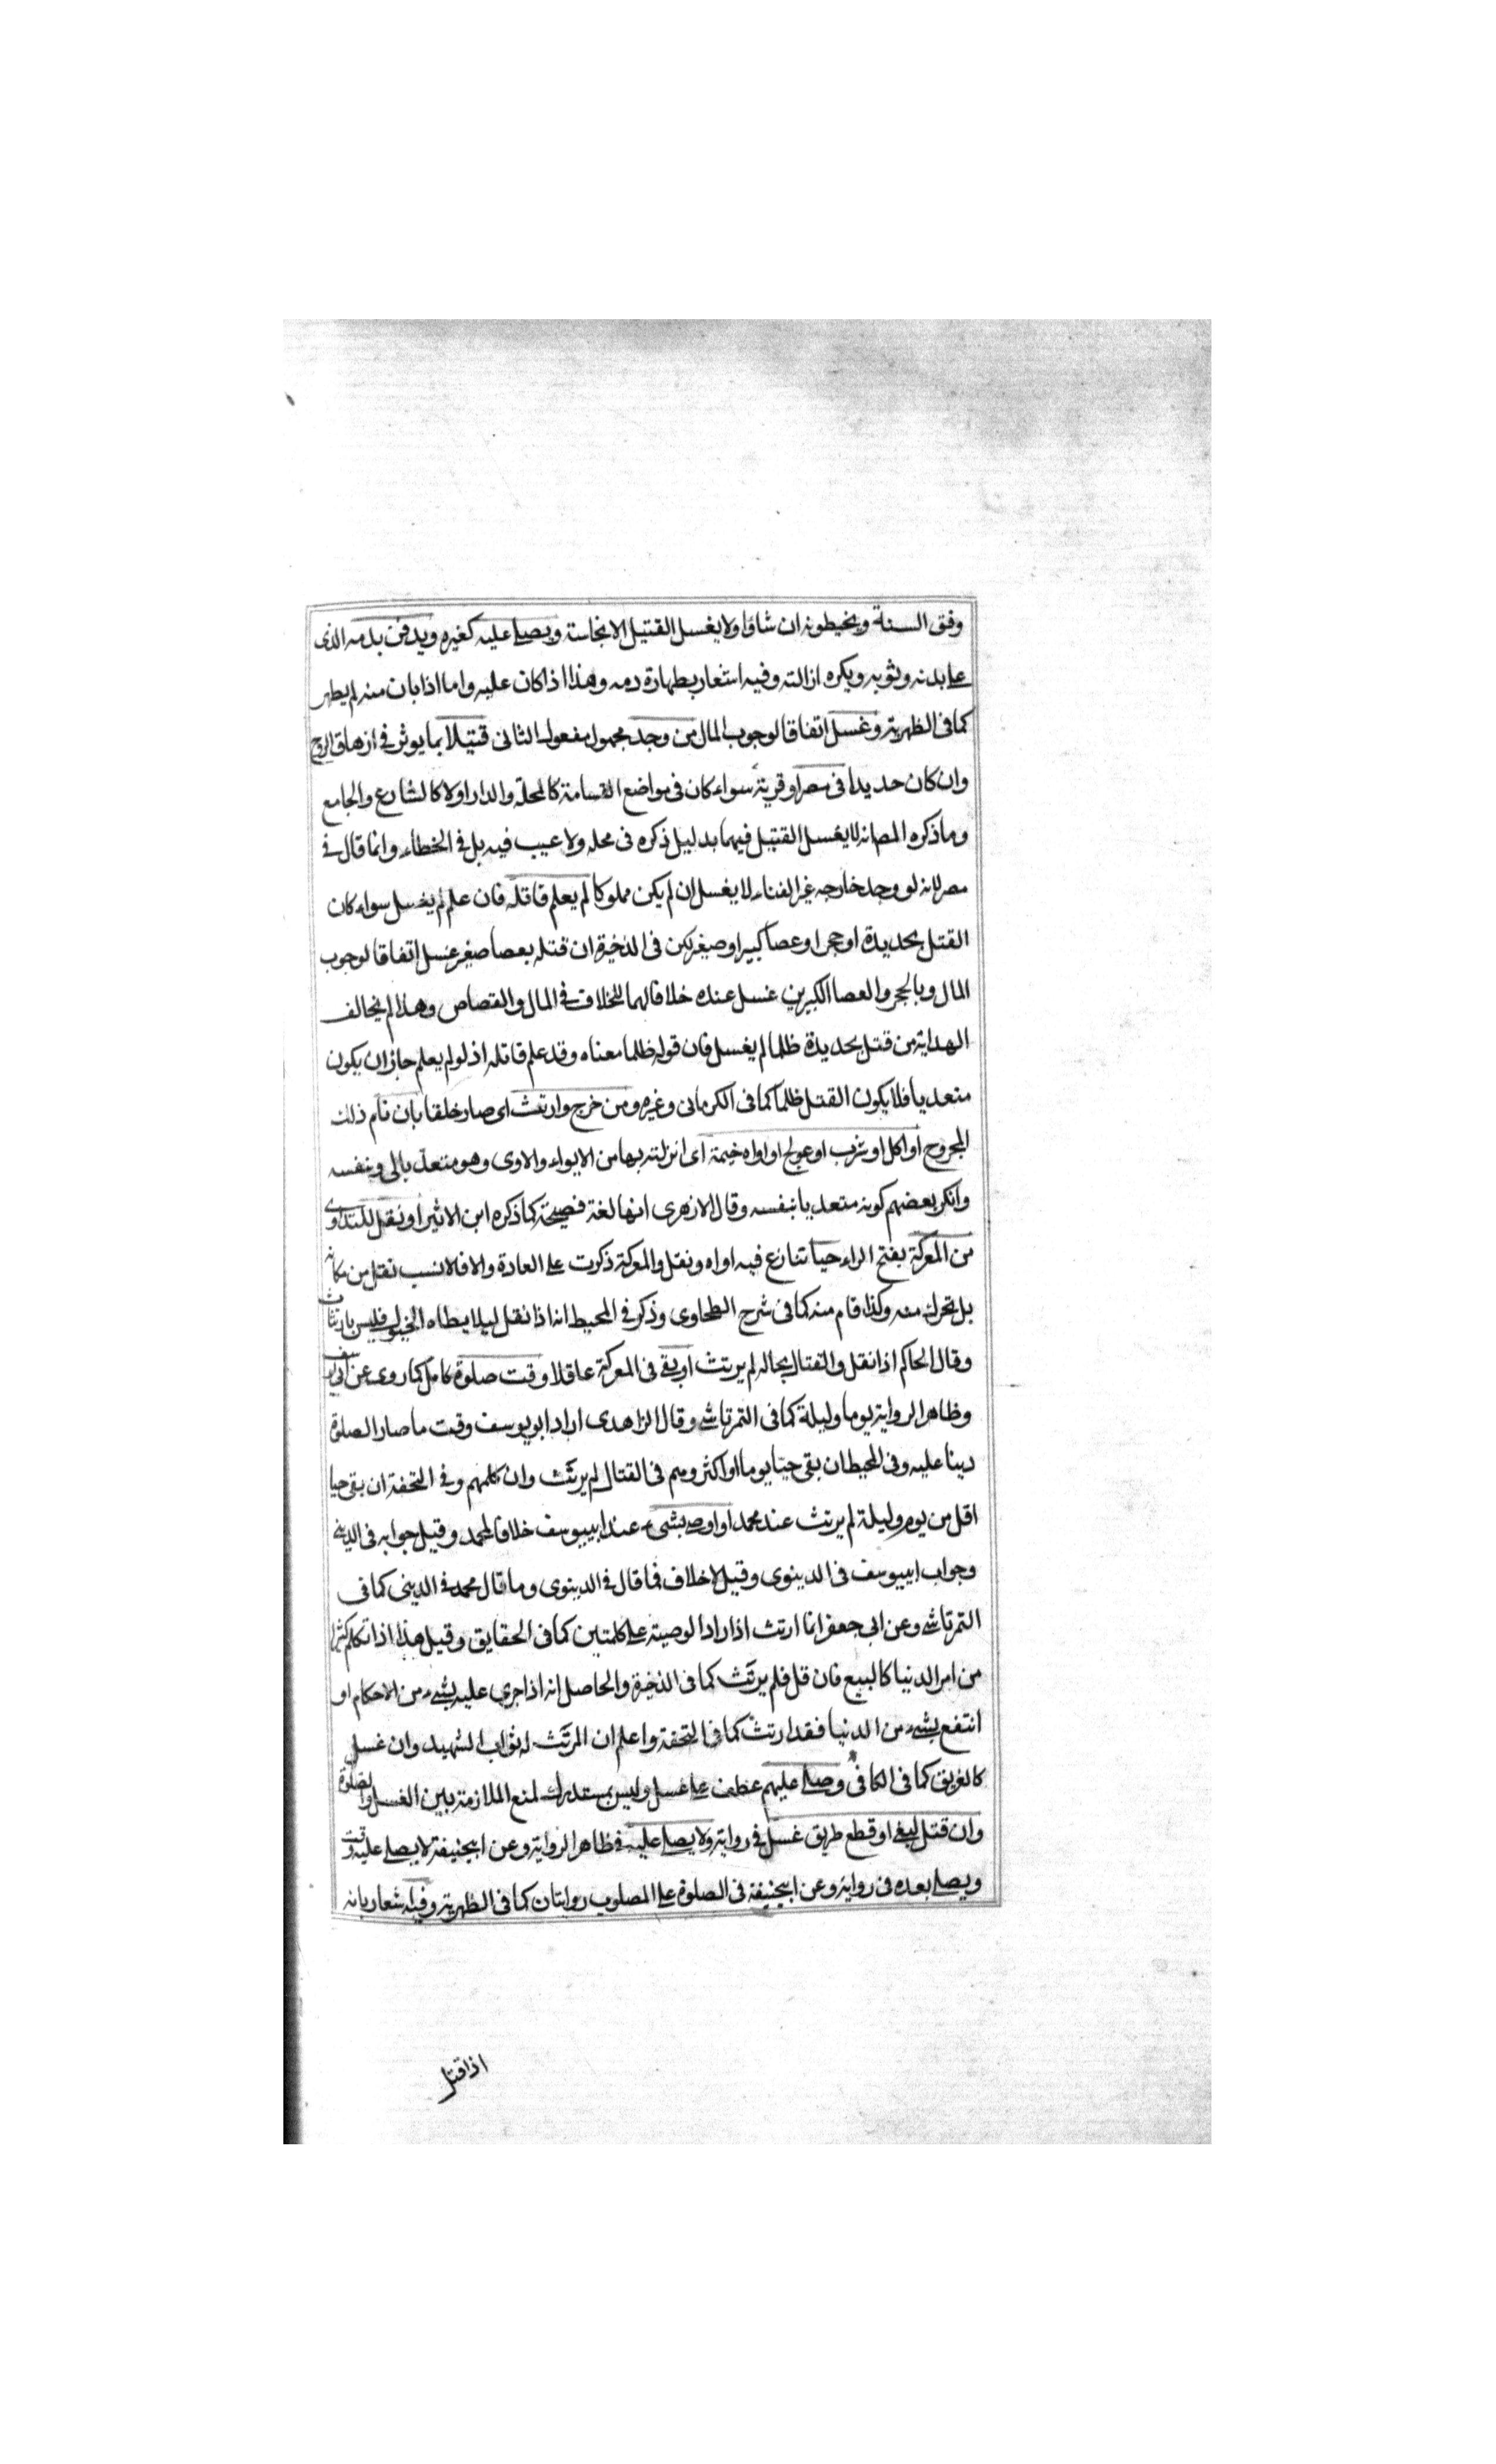 وفق السنة ويخيطونه ان شاؤا ولا يغسل القتيل الا نجاسته ويصلى عليه كغيره ويدفن بدمه الذى
على بدنه وثوبه ويكره ازالته وفيه اشعار بطهارة دمه وهذا اذا كان عليه واما اذا بان منه لم يطهر
كما فى الظهيرية وغسل اتفاقا لوجوب المال من وجد مجهول مفعوله الثانى قتيلا بما يوثر فى ازهاق الروح
وان كان حديدا فى مصر او قرية سواء كان فى مواضع القسامة كالمحلة والدار اولا كالشارع والجامع
وما ذكره المصـ انه لا يغسل القتيل فيهما بدليل ذكره فى محله ولا عيب فيه بل فى الخطاء وانما قال فى
مصر لانه لو وجد خارجه غير الفناء لا يغسل ان لم يكن مملوكا لم يعلم قاتله فان علم لم يغسل سواء كان
القتل بحديدة او حجر او عصا كبير او صغير لكن فى الذخيرة ان قتله بعصا صغير غسل اتفاقا لوجوب
المال وبالحجر والعصا الكبيرين غسل عنده خلافا لهما للخلاف فى المال والقصاص وهذا لم يخالف
الهداية من قتل بحديدة ظلما لم يغسل فان قوله ظلما معناه وقد علم قاتله اذ لو لم يعلم جاز ان يكون
متعديا فلا يكون القتل ظلما كما فى الكرمانى وغيره ومن خرج وارتث اى صار خلقا بان نام ذلك
المجروح او اكل او شرب او عولج او اواه خيمة اى انزلته بها من الايواء والاوى وهو متعد بالى وبنفسه
وانكر بعضهم كونه متعديا بنفسه وقال الازهرى انها لغة فصيحة كما ذكره ابن الاثير او نقل للتداوى
من المعركة بفتح الراء حيا تنازع فيه اواه ونقل والمعركة ذكرت على العادة والا فالانسب نقل من مكانه
بل تحرك منه وكذا قام منه كما فى شرح الطحاوى وذكر فى المحيط انه اذا نقل ليلا يطاه الخيول فليس بارتثاث
وقال الحاكم اذا نقل والقتال بحاله لم يرتث او بقى فى المعركة عاقلا وقت صلوة كامل كما روى عن ابى يوسف
وظاهر الرواية يوما وليلة كما فى التمرتاشى وقال الزاهدى اراد ابو يوسف وقت ما صار الصلوة
دينا عليه وفى المحيط ان بقى حيا يوما او اكثر وهم فى القتال لم يرتث وان كلمهم وفى التحفة ان بقى حيا
اقل من يوم وليلة لم يرتث عند محمد او اوصى بشىء عند ابيوسف خلافا لمحمد وقيل جوابه فى الدينى
وجواب ابيوسف فى الدينوى وقيل لا خلاف فما قال فى الدينوى وما قال محمد فى الدينى كما فى
التمرتاشى وعن ابى جعفر انما ارتث اذا زاد الوصية على كلمتين كما فى الحقايق وقيل هذا اذا تكلم كثيرا
من امر الدنيا كالبيع فان قل فلم يرتث كما فى الذخيرة والحاصل انه اذا جرى عليه بشىء من الاحكام او
انتفع بشىء من الدنيا فقد ارتث كما فى التحفة واعلم ان المرتث له ثواب الشهيد وان غسل
كالغريق كما فى الكافى وصلى عليهم عطف على غسل وليس بمستدرك لمنع الملازمة بين الغسل والصلوة
وان قتل لبغى او قطع طريق غسل فى رواية ولا يصلى عليه فى ظاهر الرواية وعن ابيحنيفة لا يصلى عليه وقت
ويصلى بعده فى رواية وعن ابيحنيفة فى الصلوة على المصلوب روايتان كما فى الظهيرية وفيه شعار بانه
اذا قتل